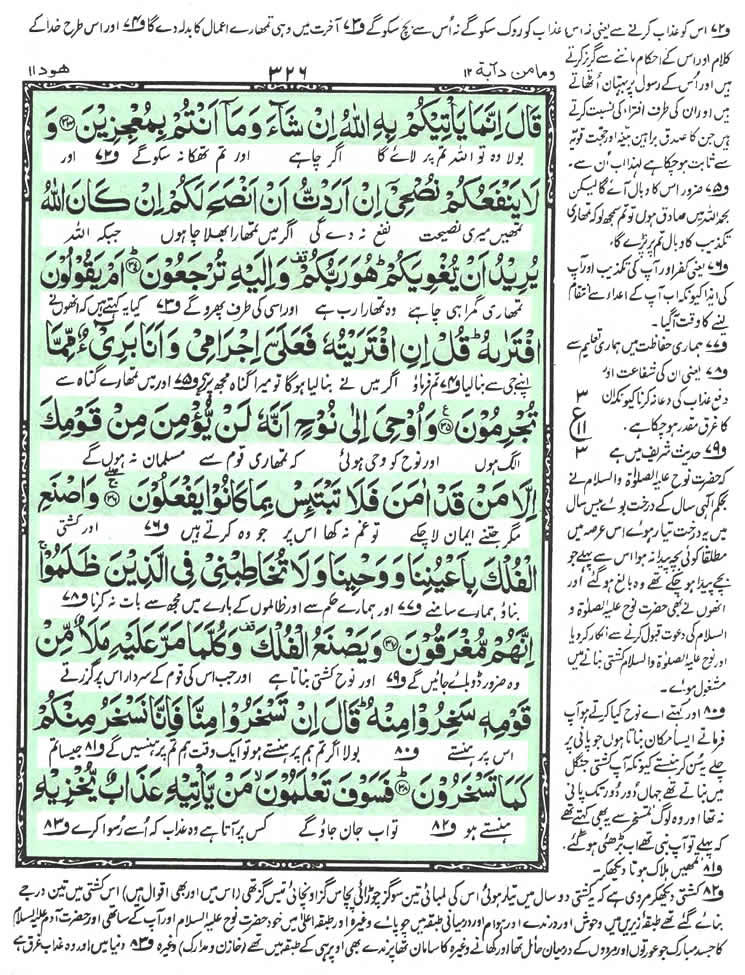 و۷۲ اس کو عذاب کرنے سے یعنی نہ اس عذاب کو روک سکو گے نہ اس سے بچ سکو گے و۷۳ آخرت میں وہی تمھارے اعمال کا بدلہ دے گا و۷۴ اور اس طرح خدا کے
ھود ۱۱
۳۲۶
وما من دآبة ۱۲
قَالَ اِنَّمَا یَاْتِیْكُمْ بِهِ اللّٰهُ اِنْ شَآءَ وَمَاۤ اَنْتُمْ بِمُعْجِزِیْنَ ۳۳ وَ
بولا وہ تو اللہ تم پر لائے گا اگر چاہے اور تم تھکا نہ سکو گے و۷۲ اور
لَا یَنْفَعُكُمْ نُصْحِیْۤ اِنْ اَرَدْتُّ اَنْ اَنْصَحَ لَكُمْ اِنْ كَانَ اللّٰهُ
تمھیں میری نصیحت نفع نہ دے گی اگر میں تمھارا بھلا چاہوں جبکہ اللہ
یُرِیْدُ اَنْ یُّغْوِیَكُمْ هُوَ رَبُّكُمْ وَاِلَیْهِ تُرْجَعُوْنَ ۳۴ اَمْ یَقُوْلُوْنَ
تمھاری گمراہی چاہے وہ تمھارا رب ہے اور اسی کی طرف پھرو گے و۷۳ کیا یہ کہتے ہیں کہ انھوں نے
افْتَرٰىهُ قُلْ اِنِ افْتَرَیْتُهٗ فَعَلَیَّ اِجْرَامِیْ وَاَنَا بَرِیْٓءٌ مِّمَّا
اپنے جی سے بنا لیا و۷۴ تم فرماؤ اگر میں نے بنا لیا ہوگا تو میرا گناہ مجھ پر ہے و۷۵ اور میں تمھارے گناہ سے
تُجْرِمُوْنَ ۳۵ وَاُوْحِیَ اِلٰی نُوْحٍ اَنَّهٗ لَنْ یُّؤْمِنَ مِنْ قَوْمِكَ
الگ ہوں اور نوح کو وحی ہوئی کہ تمھاری قوم سے مسلمان نہ ہوں گے
اِلَّا مَنْ قَدْ اٰمَنَ فَلَا تَبْتَئِسْ بِمَا كَانُوْا یَفْعَلُوْنَ ۳۶ وَاصْنَعِ
مگر جتنے ایمان لا چکے تو غم نہ کھا اس پر جو وہ کرتے ہیں و۷۶ اور کشتی
الْفُلْكَ بِاَعْیُنِنَا وَوَحْیِنَا وَلَا تُخَاطِبْنِیْ فِی الَّذِیْنَ ظَلَمُوْا
بناؤ ہمارے سامنے و۷۷ اور ہمارے حکم سے اور ظالموں کے بارے میں مجھ سے بات نہ کرنا و۷۸
اِنَّهُمْ مُّغْرَقُوْنَ ۳۷ وَیَصْنَعُ الْفُلْكَ وَكُلَّمَا مَرَّ عَلَیْهِ مَلَاٌ مِّنْ
وہ ضرور ڈوبائے جائیں گے و۷۹ اور نوح کشتی بناتا ہے اور جب اس کی قوم کے سردار اس پر گزرتے
قَوْمِهٖ سَخِرُوْا مِنْهُ قَالَ اِنْ تَسْخَرُوْا مِنَّا فَاِنَّا نَسْخَرُ مِنْكُمْ
اس پر ہنستے و۸۰ بولا اگر تم ہم پر ہنستے ہو تو ایک وقت ہم تم پر ہنسیں گے و۸۱ جیسا تم
كَمَا تَسْخَرُوْنَ ۳۸ فَسَوْفَ تَعْلَمُوْنَ مَنْ یَّاْتِیْهِ عَذَابٌ یُّخْزِیْهِ
ہنستے ہو و۸۲ تو اب جان جاؤ گے کس پر آتا ہے وہ عذاب کہ اسے رسوا کرے و۸۳
کلام اور اس کے احکام ماننے سے گریز کرتے
ہیں اور اس کے رسول پر بہتان اٹھاتے
ہیں اور ان کی طرف افتراء کی نسبت کرتے
ہیں جن کا صدق براہین بینہ اور حجت قویہ
سے ثابت ہو چکا ہے لہذا اب ان سے۔
و۷۵ ضرور اس کا وبال آئے گا لیکن
بحمد اللہ میں صادق ہوں تو تم سمجھ لو کہ تمھاری
تکذیب کا وبال تم پر پڑے گا۔
و۷۶ یعنی کفر اور آپ کی تکذیب اور آپ
کی ایذا کیونکہ اب آپ کے اعداء سے انتقام
لینے کا وقت آ گیا۔
و۷۷ ہماری حفاظت میں ہماری تعلیم سے
و۷۸ یعنی ان کی شفاعت اور
دفع عذاب کی دعا نہ کرنا کیونکہ ان
کا غرق مقدر ہو چکا ہے۔
۳
ع
۱۱
۳
و۷۹ حدیث شریف میں ہے
کہ حضرت نوح علیہ الصلوٰۃ والسلام نے
بحکم الٰہی سال کے درخت بوئے بیس سال
میں یہ درخت تیار ہوئے اس عرصہ میں
مطلقا کوئی بچہ پیدا نہ ہوا اس سے پہلے جو
بچے پیدا ہو چکے تھے وہ بالغ ہو گئے اور
انھوں نے بھی حضرت نوح علیہ الصلوٰۃ و
السلام کی دعوت قبول کرنے سے انکار کر دیا
اور نوح علیہ الصلوٰۃ والسلام کشتی بنانے میں
مشغول ہوئے۔
و۸۰ اور کہتے اے نوح کیا کرتے ہو آپ
فرماتے ایسا مکان بناتا ہوں جو پانی پر
چلے یہ سن کر ہنستے کیونکہ آپ کشتی جنگل
میں بناتے تھے جہاں دور دور تک پانی
نہ تھا اور وہ لوگ تمسخر سے یہ بھی کہتے تھے
کہ پہلے تو آپ نبی تھے اب بڑھئی ہو گئے۔
و۸۱ تمھیں ہلاک ہوتا دیکھ کر۔
و۸۲ کشتی دیکھ کر مروی ہے کہ یہ کشتی دو سال میں تیار ہوئی اس کی لمبائی تین سو گز چوڑائی پچاس گز اونچائی تیس گز تھی (اس میں اور بھی اقوال ہیں) اس کشتی میں تین درجے
بنائے گئے تھے طبقہ زیریں میں وحوش اور درندے اور ہوام اور درمیانی طبقہ میں چوپائے وغیرہ اور طبقہ اعلیٰ میں خود حضرت نوح علیہ السلام اور آپ کے ساتھی اور حضرت آدم علیہ السلام
کا جسد مبارک جو عورتوں اور مردوں کے درمیان حائل تھا اور کھانے وغیرہ کا سامان تھا پرندے بھی اوپر ہی کے طبقہ میں تھے (خازن و مدارک) وغیرہ و۸۳ دنیا میں اور وہ عذاب غرق ہے